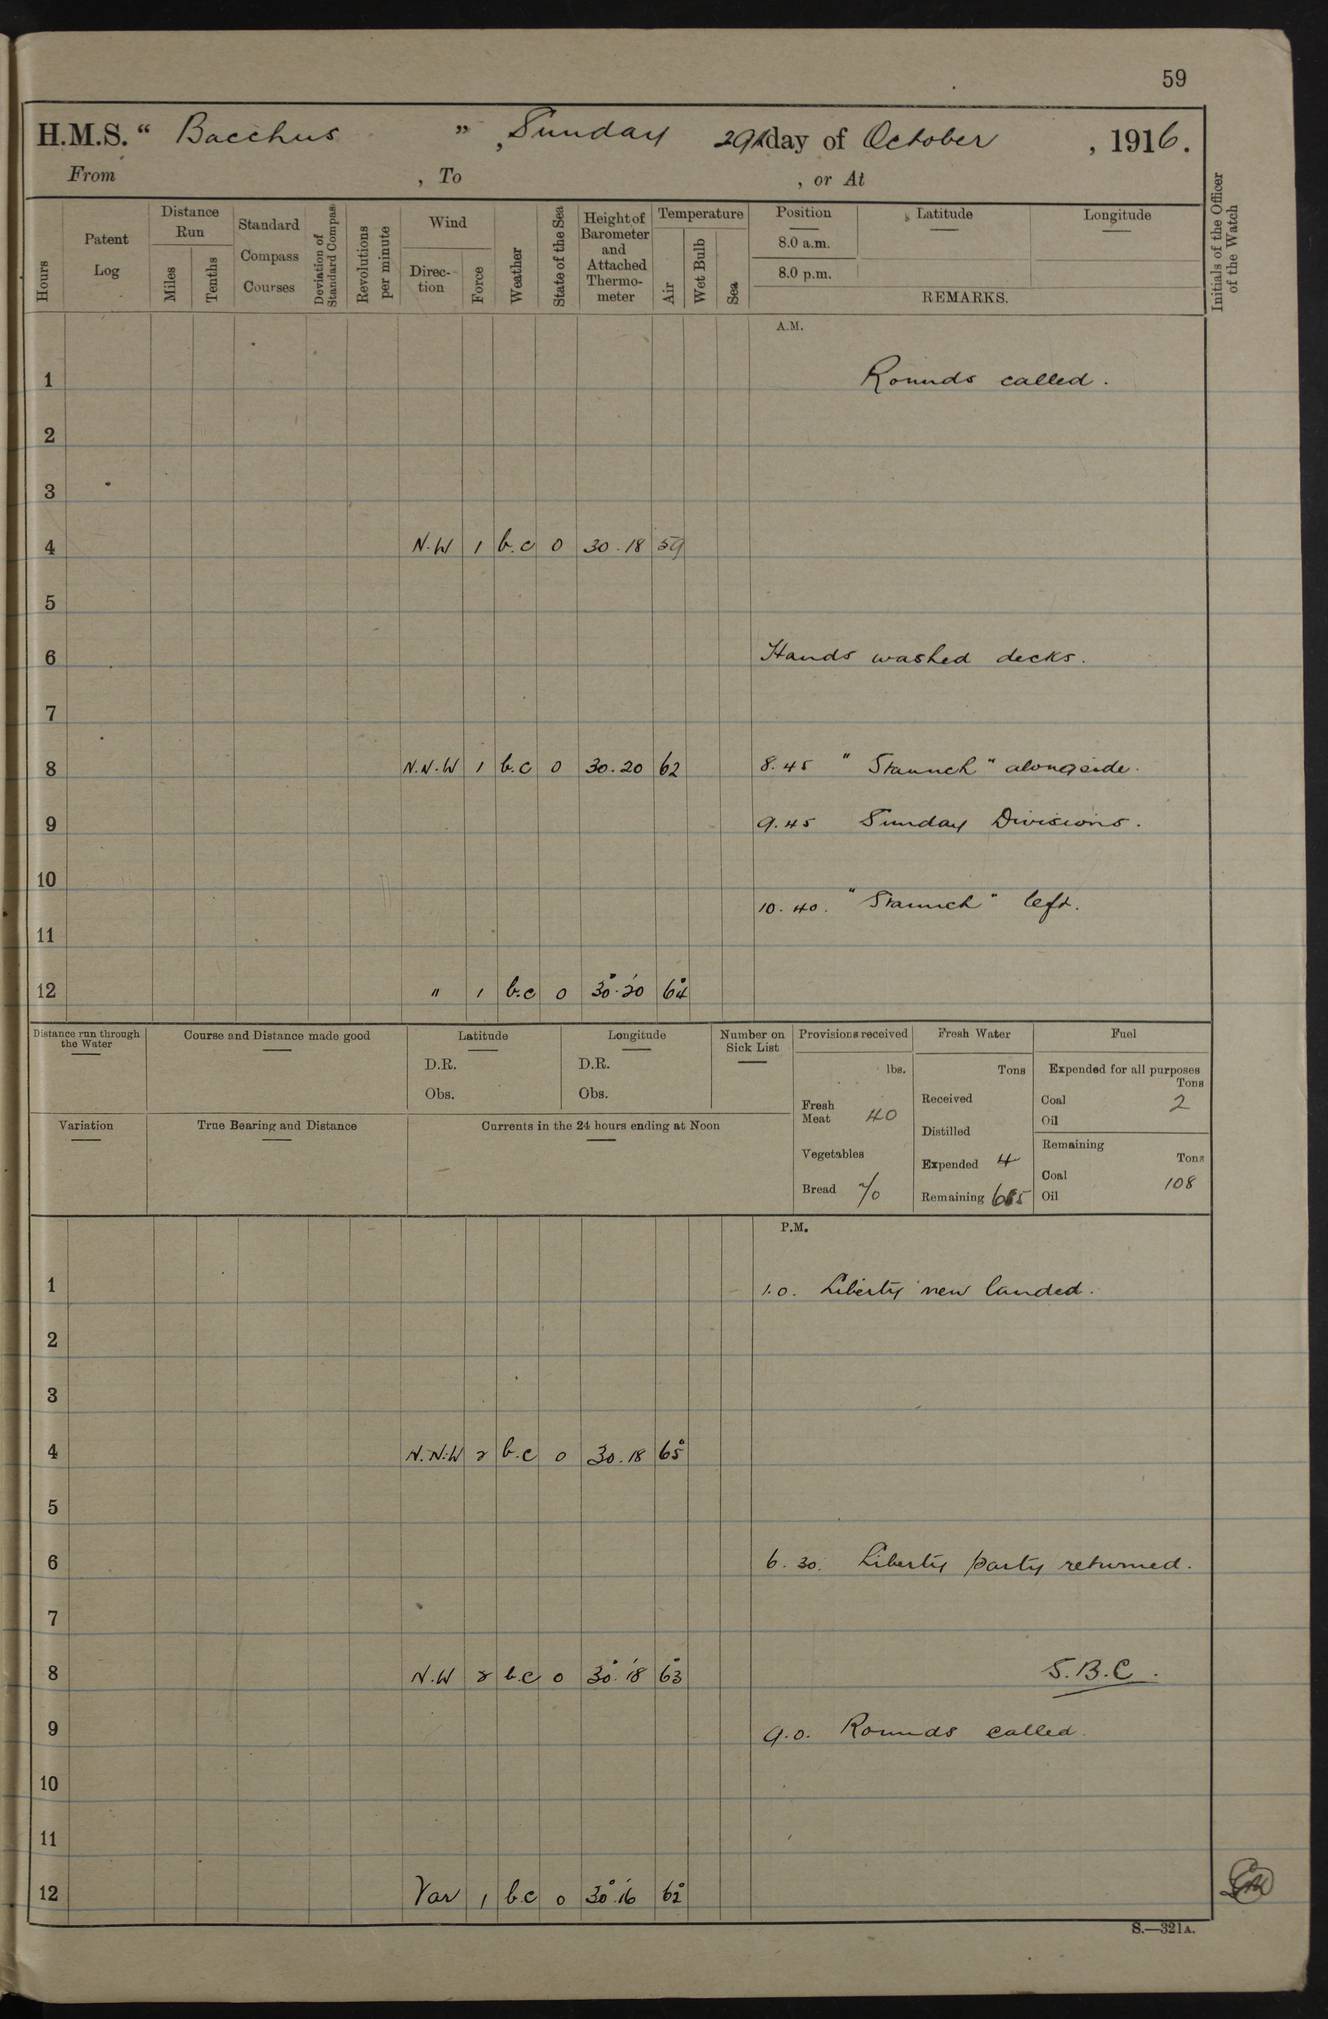 59
H.M.S. “ Bacchus ” , Sunday 29th day of October , 1916.
From , To , or At
Hours
Patent Log
Distance Run
Miles
Tenths
Standard Compass Courses
Deviation of Standard Compass
Revolutions per minute
Wind
Direc-tion
Force
Weather
State of the Sea
Height of Barometer and Attached Thermo-meter
Temperature
Air
Wet Bulb
Sea
Position Latitude Longitude
8.0 a.m.
8.0 p.m.
REMARKS.
Initials of the Officer of the Watch
A.M.
1 Rounds called.
2
3
4 N.W 1 b.c 0 30.18 59
5
6 Hands washed decks.
7
8 N.N.W 1 b.c 0 30.20 62 8.45 " Staunch " alongside.
9 9.45 Sunday Divisions.
10
10.40. " Staunch " left.
11
12 " 1 b.c 0 30.20 64
Distance run through the Water
Course and Distance made good
Latitude
D.R.
Obs.
Longitude
D.R.
Obs.
Number on Sick List
Variation
True Bearing and Distance
Currents in the 24 hours ending at Noon
Provisions received
lbs.
Fresh Meat 40
Vegetables
Bread 70
Fresh Water
Tons
Received
Distilled
Expended 4
Remaining
Fuel
Expended for all purposes
Tons
Coal 2
Oil
Remaining
Tons
Coal 108
Oil
P.M.
1 1.0. Liberty men landed.
2
3
4 N.N.W 2 b.c 0 30.18 65°
5
6 6.30. Liberty party returned.
7
8 N.W 2 b.c 0 30°.18 63° S.B.C.
9 9.0. Rounds called.
10
11
12 Var 1 b.c 0 30°.16 62°
S.—321A.